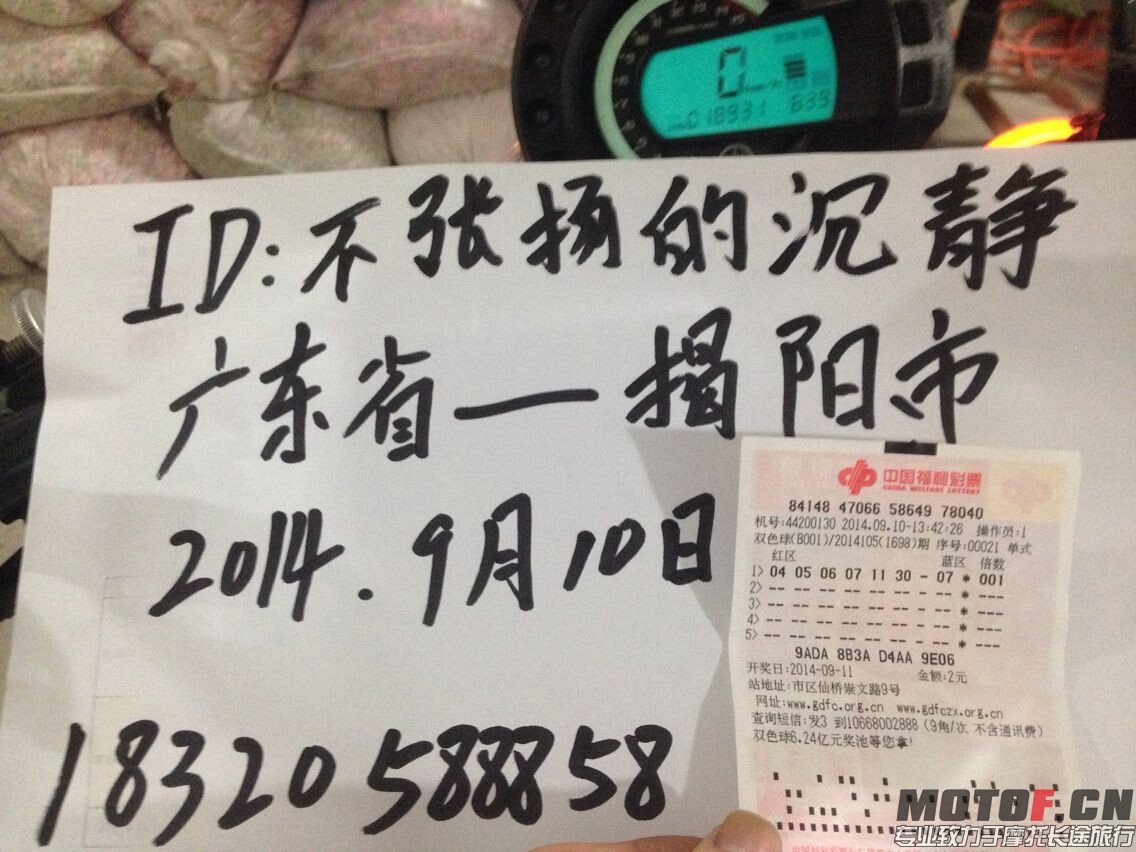 0
018931 839
ID:不张扬的沉静
广东省—揭阳市
2014.9月10日
18320588858
中国福利彩票
CHINA WELFARE LOTTERY
84148 47066 58649 78040
机号:44200130 2014.09.10-13:42:26 操作员:1
双色球(B001)/2014105(1698)期 序号:00021 单式
红区 蓝区 倍数
1> 04 05 06 07 11 30 - 07 * 001
2> -- -- -- -- -- -- - -- * ---
3> -- -- -- -- -- -- - -- * ---
4> -- -- -- -- -- -- - -- * ---
5> -- -- -- -- -- -- - -- * ---
9ADA 8B3A D4AA 9E06
开奖日:2014-09-11 金额:2元
站地址:市区仙桥崇文路9号
网址:www.gdfc.org.cn www.gdfczx.org.cn
查询短信:发3 到10668002888 (9角/次 不含通讯费)
双色球6.24亿元奖池等您拿!
MOTOF.CN
专业致力于摩托长途旅行